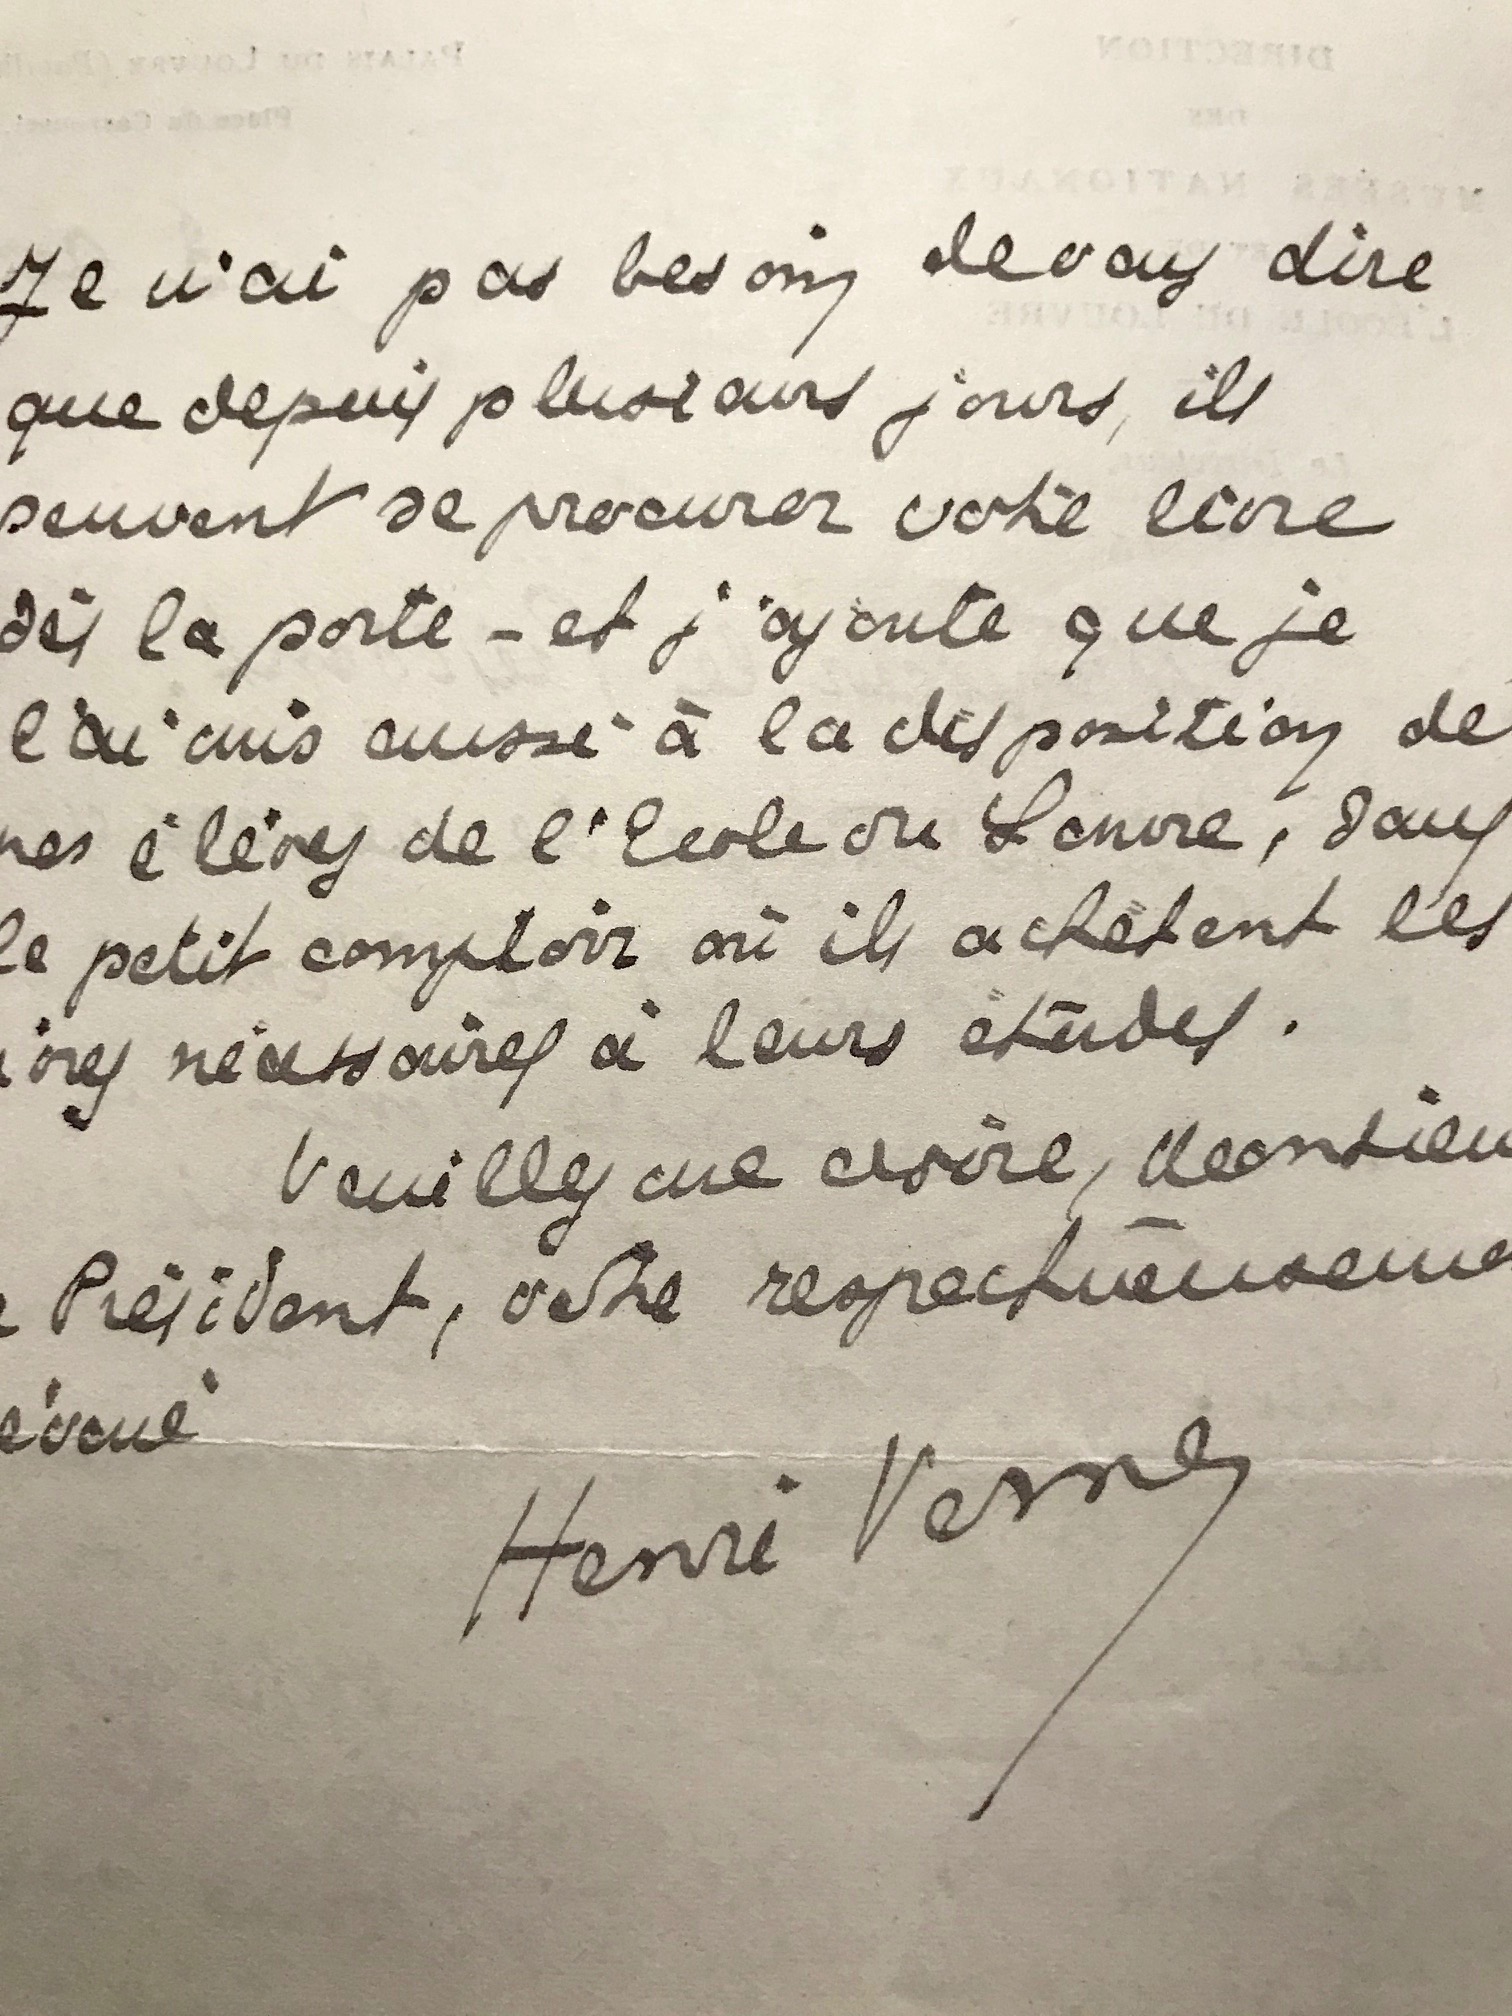 Je n'ai pas besoin de vous dire
que depuis plusieurs jours, ils
peuvent se procurer votre livre
dès la porte - et j'ajoute que je
l'ai mis aussi à la disposition de
mes élèves de l'Ecole du Louvre, dans
le petit comptoir où ils achètent les
livres nécessaires à leurs études.
Veuillez me croire, Monsieu
e Président, votre respectueuseme
évoué
Henri Verne
DIRECTION
DES
MUSÉES NATIONAUX
L'ÉCOLE DU LOUVRE
PALAIS DU LOUVRE
Place du Carrousel